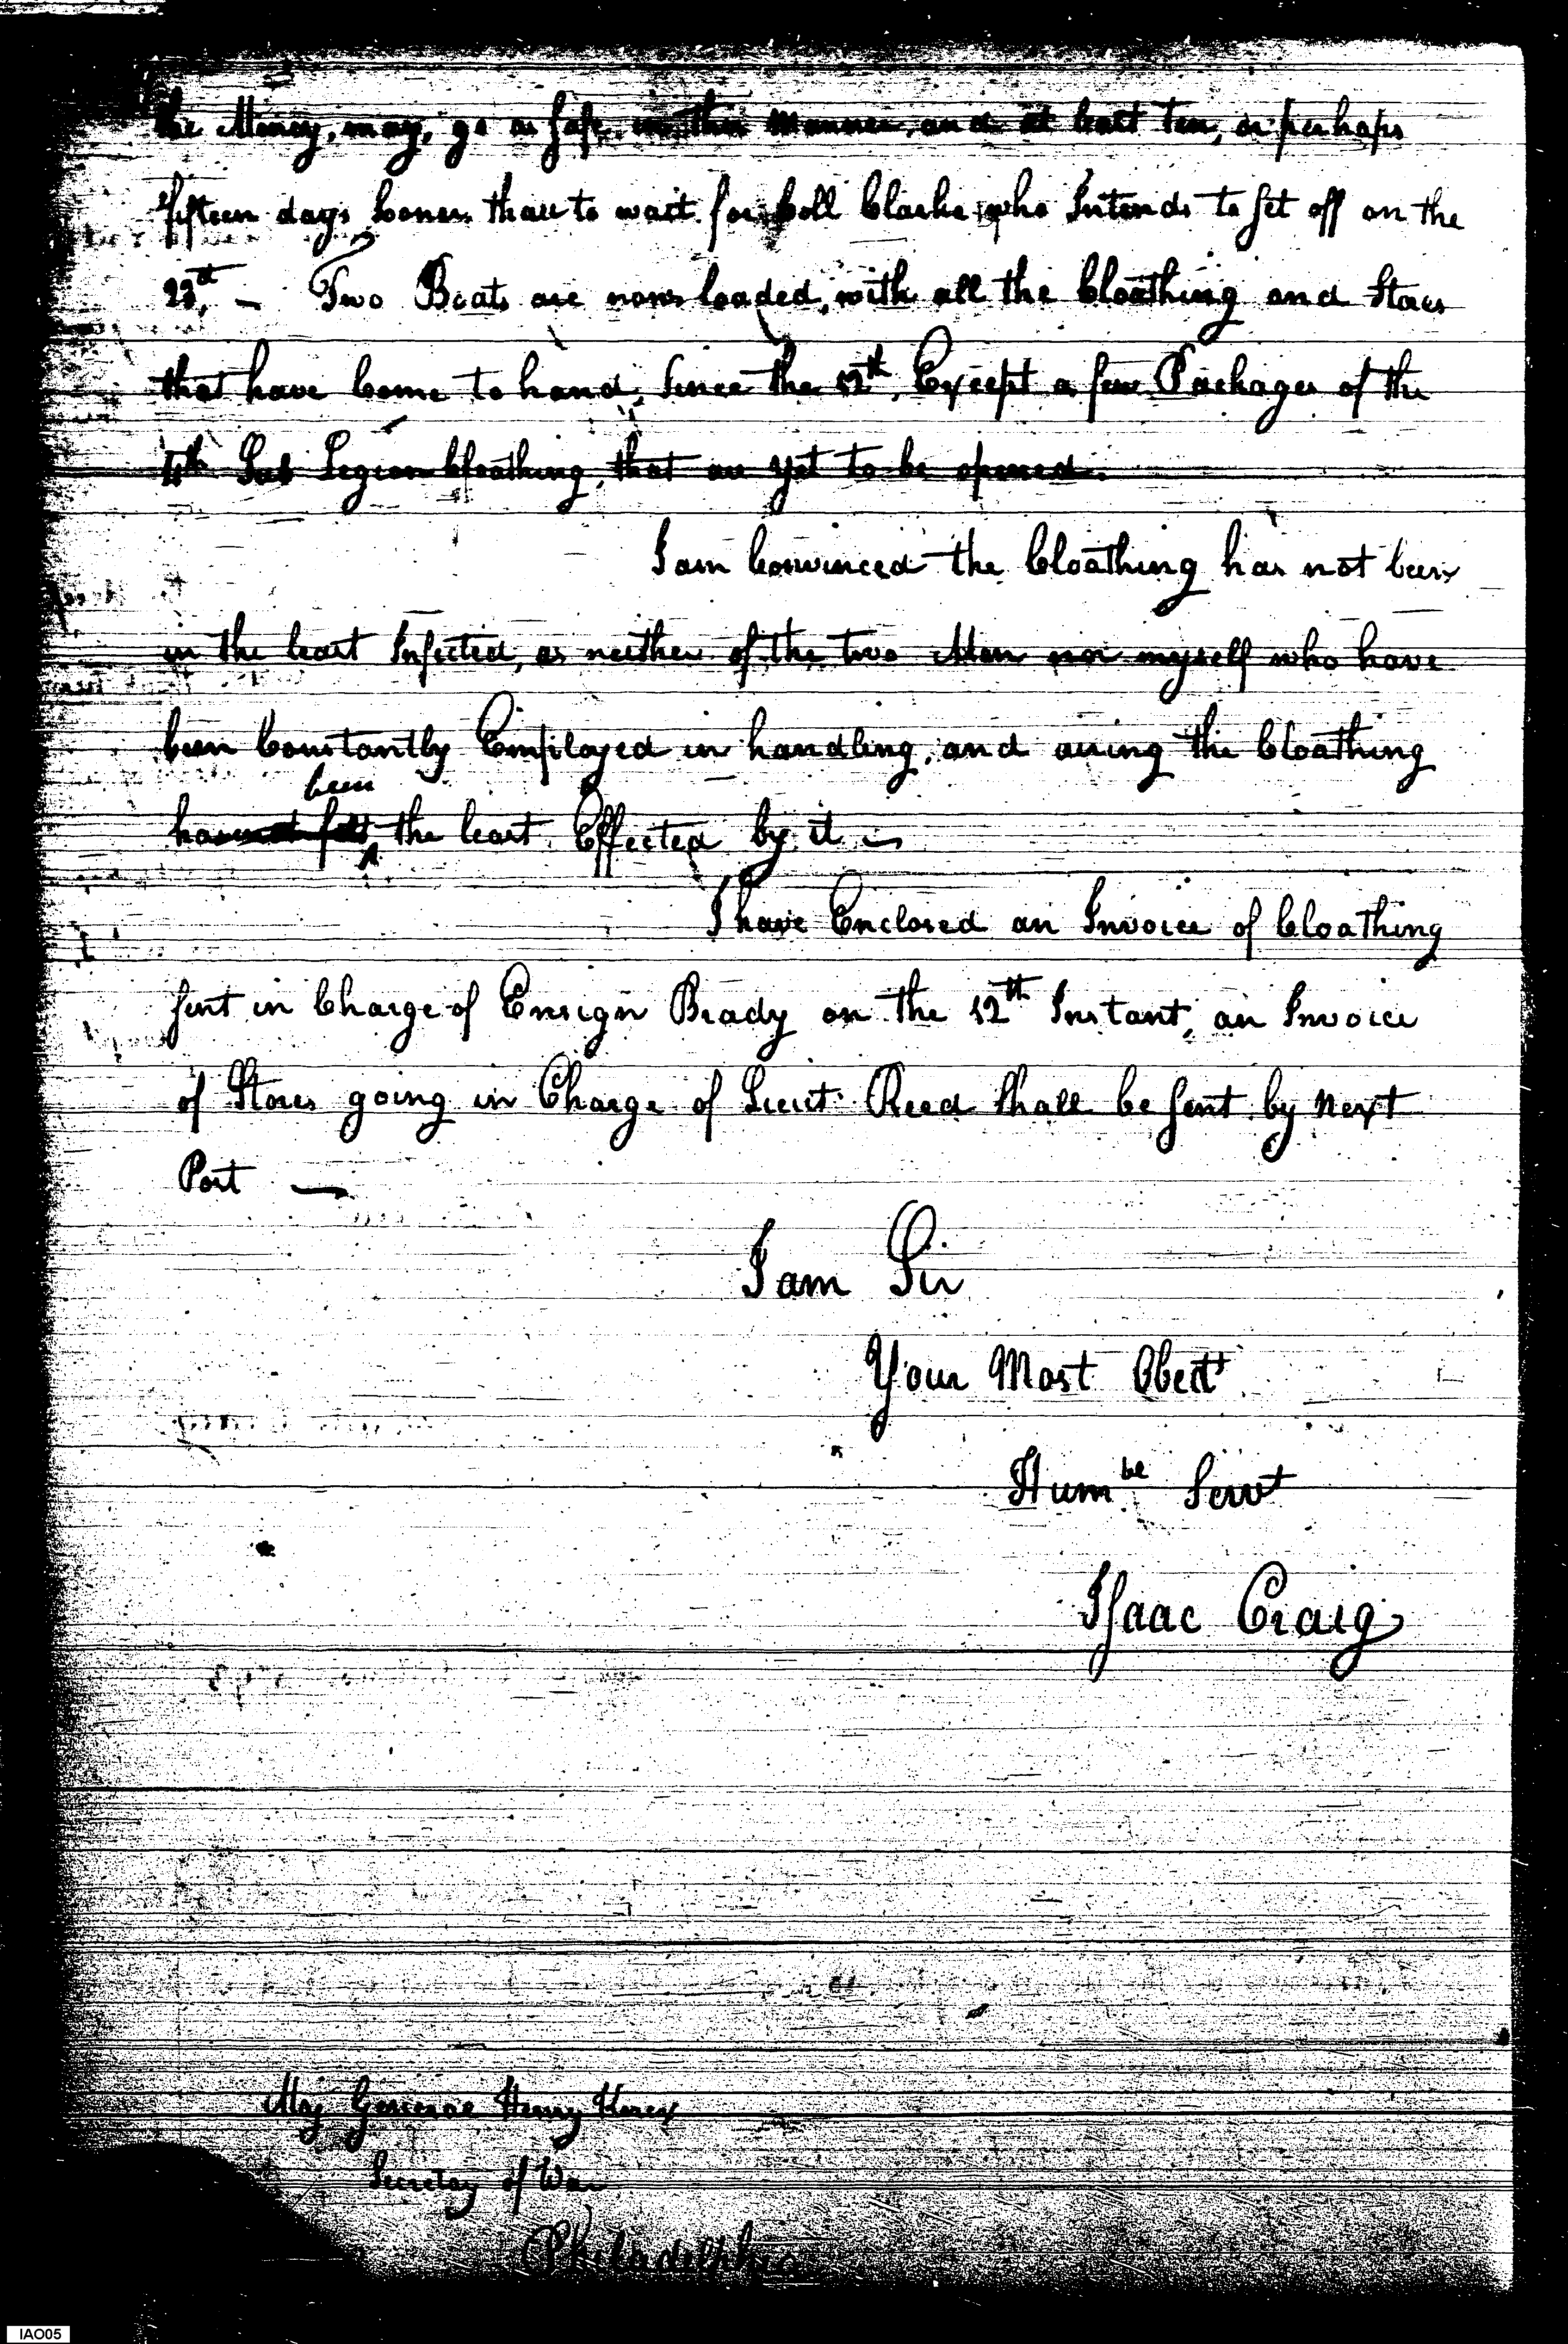 the Money, may, go as safe, in this manner, and at least ten, or perhaps
fifteen days sooner than to wait for Coll Clarke who Intends to set off on the
23d. — Two Boats are now loaded, with all the Cloathing and Stores
that have Come to hand, Since the 12th, Except a few Packages of the
4th Sub Legion Cloathing, that are yet to be opened.
I am Convinced the Cloathing has not been
in the least Infected, as neither of the two Men nor myself who have
been Constantly Employed in handling, and airing the Cloathing
been
has the least Effected by it —
I have Enclosed an Invoice of Cloathing
sent in Charge of Ensign Brady on the 12th Instant, an Invoice
of Stores going in Charge of Lieut. Reed Shall be sent by next
Post —
I am Sir
Your Most Obedt
Humbe Servt
Isaac Craig
Maj General Henry Knox
Secretay of War
Philadelphia
IAO05